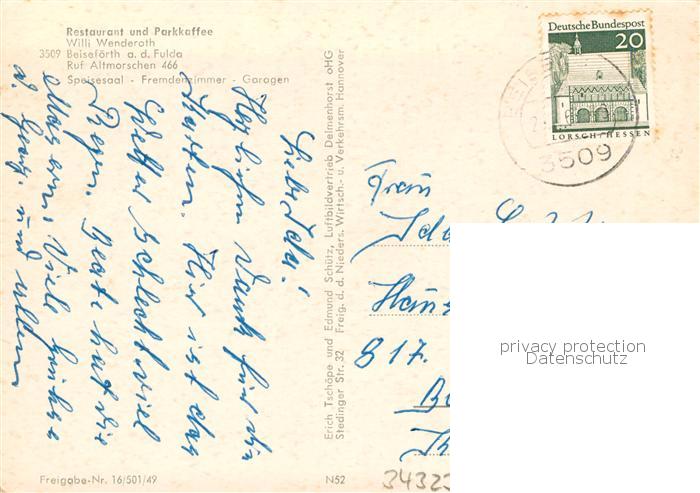 Restaurant und Parkkaffee
Willi Wenderoth
3509 Beiseförth a. d. Fulda
Ruf Altmorschen 466
Speisesaal - Fremdenzimmer - Garagen
Liebe Ida!
Herlichen Dank für die
Karten. Hier ist das
Wetter schlecht viel
Regen. Beate hat die
Masern. Viele Grüsse
a. Georg. und allen
Erich Tschöpe und Edmund Schütz, Luftbildvertrieb Delmenhorst oHG
Stedinger Str. 32 Freig. d. d. Nieders. Wirtsch.- u. Verkehrsm. Hannover
Deutsche Bundespost
20
LORSCH/HESSEN
3509
Frau
Ida
817.
privacy protection
Datenschutz
Freigabe-Nr. 16/501/49
N52